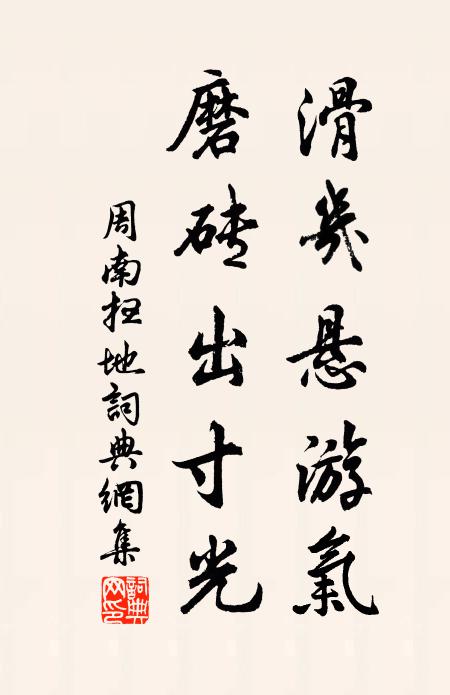 滑幾悬游氣
磨砖出寸光
周南扫地詞典網集
詞典网印